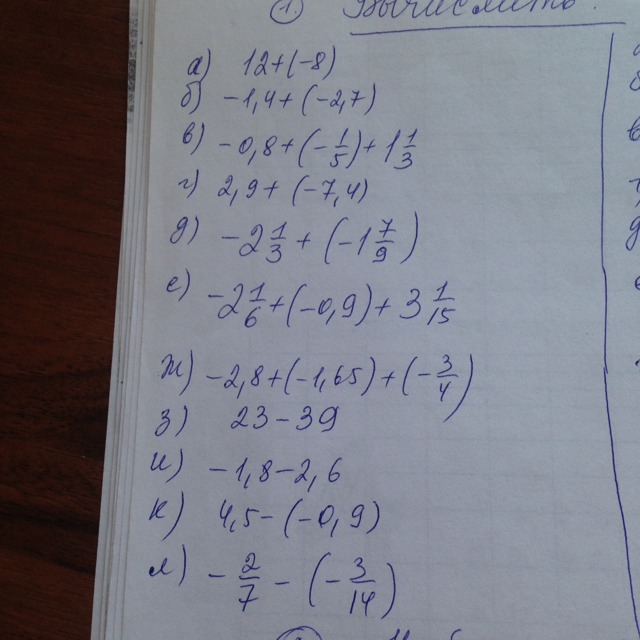 ① Вычислить:
а) 12+(-8)
б) -1,4+(-2,7)
в) -0,8+(-1/5)+1 1/3
г) 2,9+(-7,4)
д) -2 1/3+(-1 7/9)
е) -2 1/6+(-0,9)+3 1/15
ж) -2,8+(-1,65)+(-3/4)
з) 23-39
и) -1,8-2,6
к) 4,5-(-0,9)
л) -2/7-(-3/14)